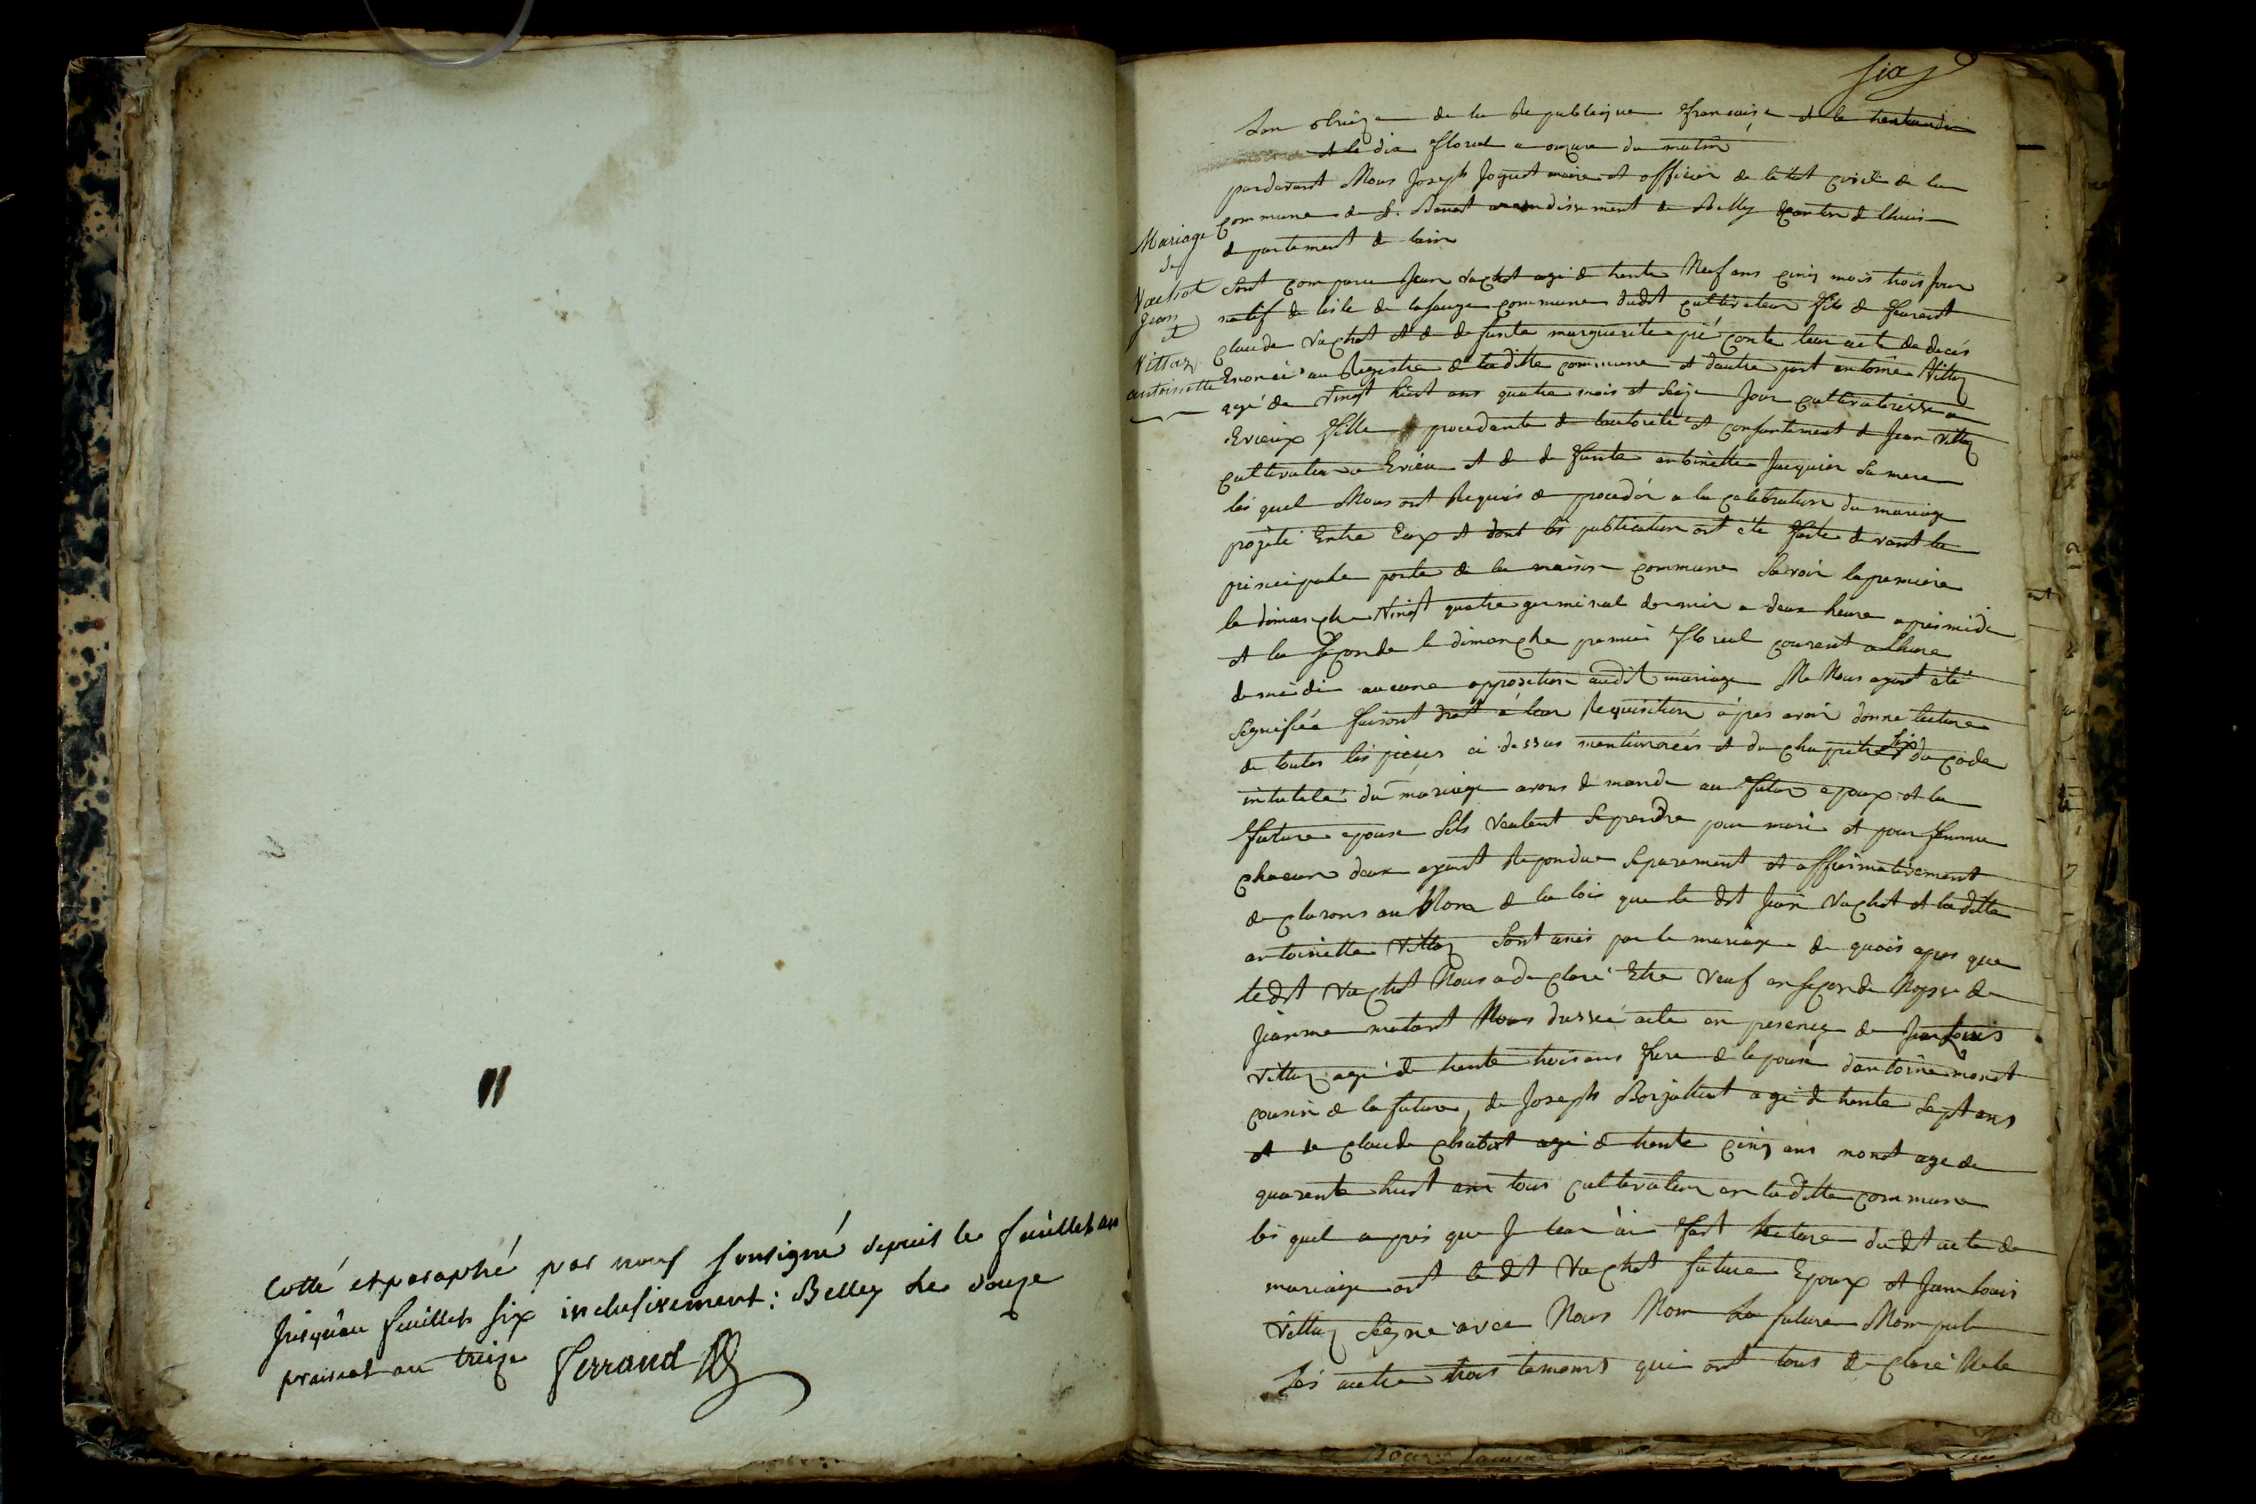 Cotté et paraphé par nous soussigné depuis le feuillet un
jusqu'au feuillet six inclusivement : Belley le douze
prairial an treize Ferrand
six
Lan treize de la Republique francaise et le
et le dix floreal a onzure du matin
pardevant Nous Joseph Joguet maire et officier de letat civil de la
commune de St. Benoit arondissement de Belley canton de lhuis
departement de lain
Mariage
de
Vachot
Jean
et
Vittoz
antoinette
Sont comparu Jean Vachot agé de trente Neuf ans cinq mois trois Jour
natif de lisle de commune dudit cultivateur fils de feu
Claude Vachot et de defunte marguerite leur acte de decès
Enoncé au Registre de laditte commune et dautre part antoine Vittoz
agé de Vingt huit ans quatre mois et Seize Jour cultivatrisse a
Evieux fille procedante de lautorité et consentement de Jean Vittoz
cultivateur a Evieu et de defunte antoinette Jacquier Sa mere
les quel Nous ont Requis de procedér a la celebration du mariage
projeté Entre Eux et dont les publication ont été faite devant la
principale porte de la maison commune Savoir la premiere
le dimanche Vingt quatre germinal dernier a deux heure apres midi
et la seconde le dimanche premier floreal courant a lheure
de midi aucune opposition audit mariage Ne Nous ayant été
Signifiée faisant droit à leur Requisition àpres avoir donne lecture
de toutes les pieces ci dessus mentionnées et du chapitre six du code
intutulé du mariage avons demande au futur epoux et la
future epouse Sils veulent Se prendre pour mari et pour femme
chacun deux ayant Repondue Separement et affirmativement
declarons au Nom de la loi que le dit Jean Vachot et la ditte
antoinette Vittoz Sont unis par le mariage de quois apres que
ledit Vachot Nous a declaré Etre Veuf en seconde Nopse de
Jeanne matant Nous dressé acte en presence de Jean Louis
Vittoz agé de trente trois ans frere de lepouse dantoine monet
cousin de la future, de Joseph Borjallut agé de trente Sept ans
et de claude chabot agé de trente cinq ans monet age de
quarente huit ans tous cultivateur en laditte commune
les quel apres que Je leur ai fait lecture dudit acte de
mariage ont le dit Vachot future Epoux et Jean Louis
Vittoz Signe avec Nous Nom La future Nom pas
Les autre trois temoins qui ont tous declaré Ne le